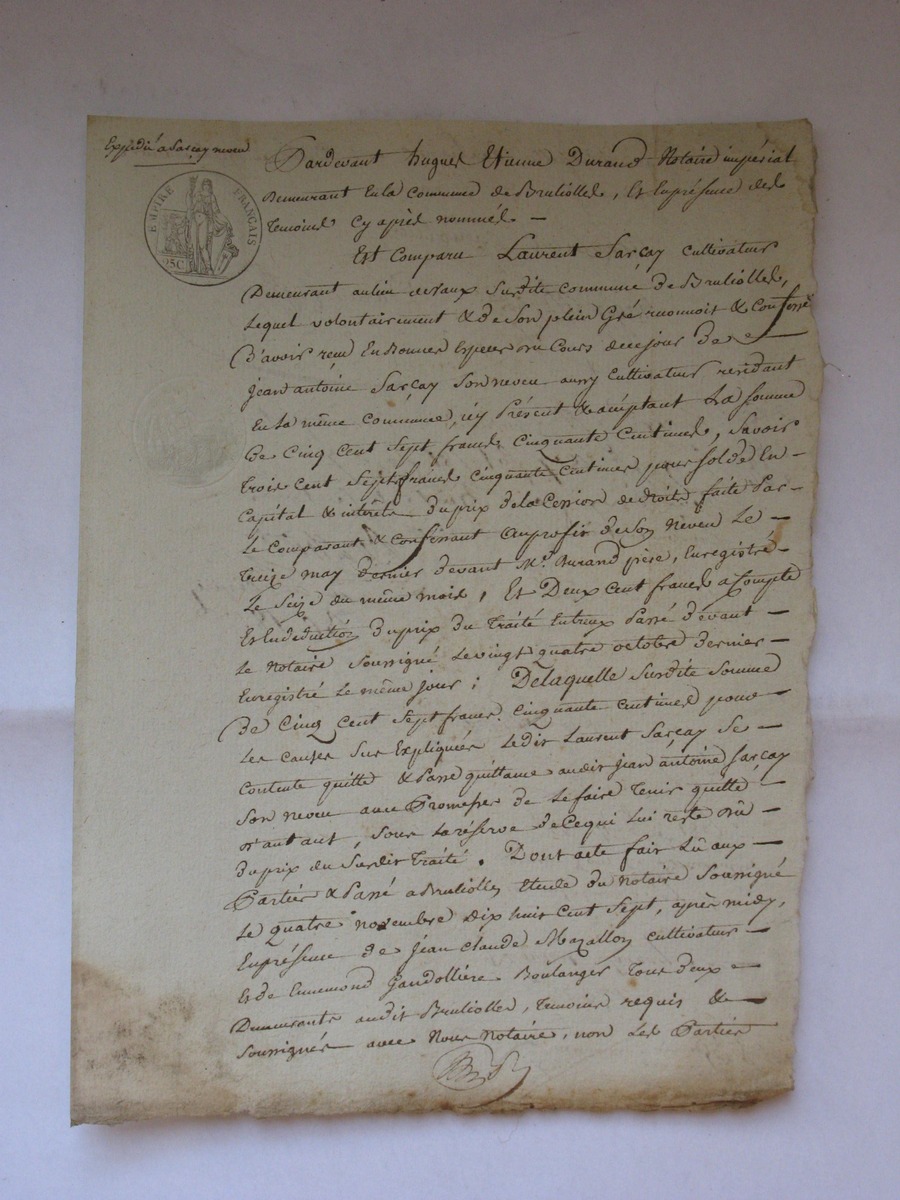 Expédié a Sarçay neveu
EMPIRE FRANÇAIS
25C
Pardevant hugues Etienne Durand Notaire impérial
Demeurant En la Commune de Brulioles, Et En présense des
temoins Cy après nommés
Est Comparu Laurent Sarçay Cultivateur
Demeurant au lieu de susdite Commune de Brulioles,
Lequel volontairement & de Son plein Gré reconnoit & Confesse
D'avoir reçu En Bonnes Especes au Cours de ce jour de
jean antoine Sarçay Son neveu aussy Cultivateur residant
En la même Commune, icy Présent & acceptant La Somme
De Cinq Cent Sept francs Cinquante Centimes, Savoir
trois Cent Sept francs Cinquante Centimes pour Solde En
Capital & intérêts Du prix de la Cession de Droits faite Par
Le Comparant & Confessant au profit de Son neveu Le
treize may Dernier Devant Me. Durand père, Enregistré
Le Seize du même mois, Et Deux Cent francs a Compte
Et En deduction Du prix Du traité Entreux Passé Devant
Le Notaire Soussigné Le vingt quatre octobre Dernier
Enregistré Le même jour; De Laquelle Susdite Somme
De Cinq Cent Sept francs Cinquante Centimes pour
Les Causes Sus Expliquées Ledit Laurent Sarçay Se
Contente quitte & Passe quittance audit jean antoine Sarçay
Son neveu avec Promesse de Le faire tenir quitte
d'autant, Sous La réserve De Ce qui Lui reste Dû
Du prix du Susdit traité. Dont acte fait Lû aux
Parties & Passé a Brulioles Etude du Notaire Soussigné
Le quatre novembre Dix huit Cent Sept, après midy,
En présense de jean Claude Mazallon Cultivateur
Et de Ennemond Gaudollière Boulanger tous Deux
Demeurants audit Brulioles, temoins requis &
Soussignés avec Nous Notaire, non Les Parties